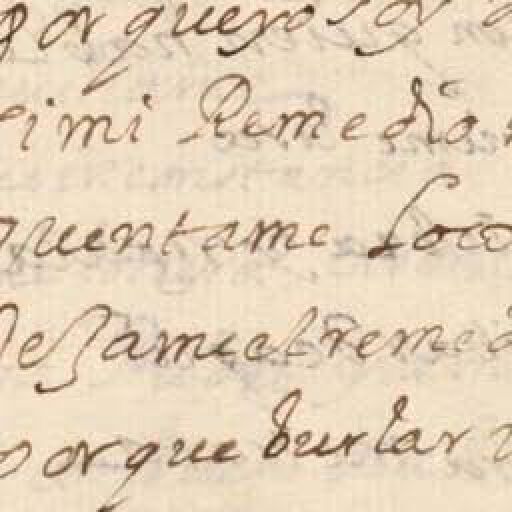 porque yo soy
i mi Remedio
quentame loco
deçame el remed
porque burlar